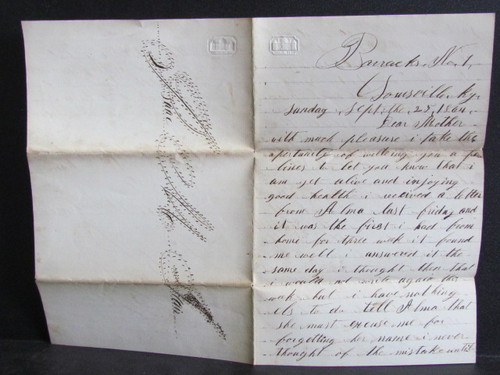 Barracks No. 1,
Louisville Ky.
Sunday, Sept. the, 1864,
Dear Mother
with much pleasure i take this
oportunity of writing you a few
lines to let you know that i
am yet alive and injoying
good health i received a letter
from Alma last friday and
it was the first i had from
home for three week it found
me well i answered it the
same day i thought then that
i would not write again this
week but i have nothing
els to do till Alma that
she must excuse me for
forgetting her name i never
thought of the mistake until